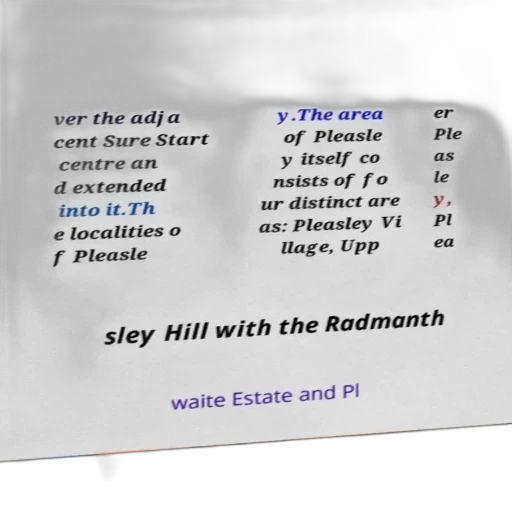 ver the adja
cent Sure Start
centre an
d extended
into it.Th
e localities o
f Pleasle
y.The area
of Pleasle
y itself co
nsists of fo
ur distinct are
as: Pleasley Vi
llage, Upp
er
Ple
as
le
y,
Pl
ea
sley Hill with the Radmanth
waite Estate and Pl